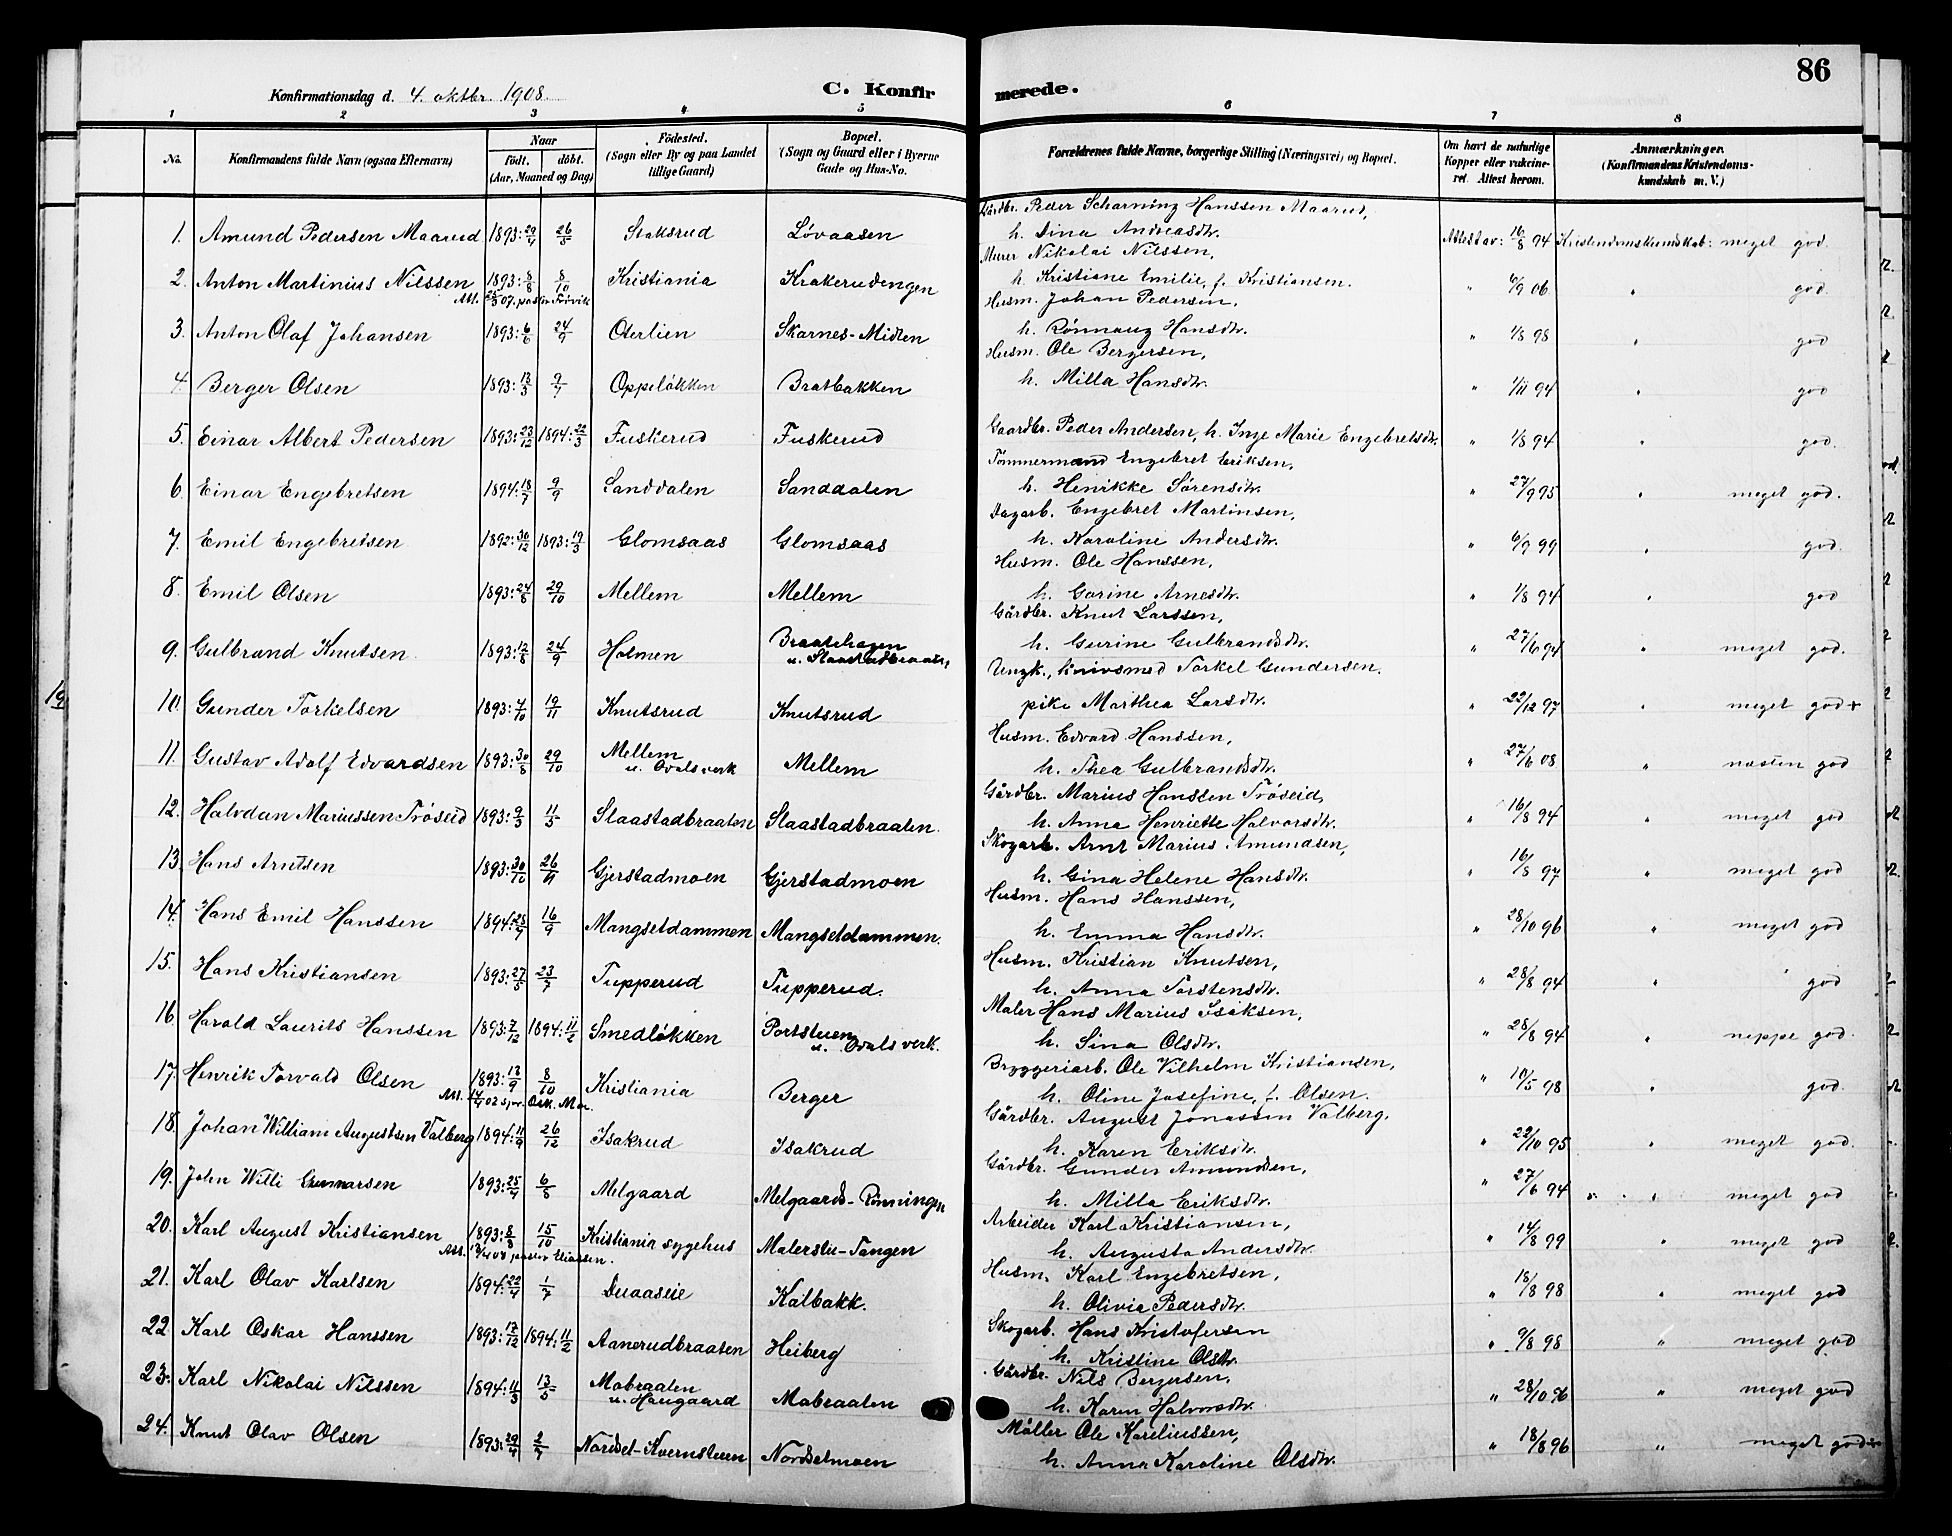 86
Konfirmationsdag d. 4. oktbr. 1908.
C. Konfirmerede.
1 2 3 4 5 6 7 8
No. Konfirmandens fulde Navn (ogsaa Efternavn) Naar født. døbt. (Aar, Maaned og Dag) Födested. (Sogn eller By og paa Landet tillige Gaard) Bopæl. (Sogn og Gaard eller i Byerne Gade og Hus-No. Forældrenes fulde Navne, borgerlige Stilling (Næringsvei) og Bopæl. Om havt de naturlige Kopper eller vakcineret. Attest herom. Anmærkninger. (Konfirmandens Kristendomskundskab m. V.)
1. Amund Pedersen Maarud 1893: 29/4 26/5 Staksrud Løvaasen Gårdbr. Peder Scharning Hanssen Maarud, h. Dina Andreasdtr. Attest av: 16/8 94 Kristendomskundskab: meget god.
2. Anton Martinius Nilssen 1893: 8/8 8/10 Kristiania Krakerudengen Murer Nikolai Nilssen, h. Kristiane Emilie, f. Kristiansen. " 6/9 06 " god.
3. Anton Olaf Johansen 1893: 6/6 24/9 Oterlien Skarnes-Midten Husm. Johan Pedersen, h. Rønnaug Hansdtr. " 1/8 98 " god
4. Berger Olsen 1893: 13/3 9/7 Oppeløkken Bratbakken Husm. Ole Bergersen, h. Milla Hansdtr. " 1/11 94 " god
5. Einar Albert Pedersen 1893: 23/12 1894: 22/3 Fuskerud Fuskerud Gaardbr. Peder Andersen, h. Inge Marie Engebretsdtr. " 1/8 94 " god.
6. Einar Engebretsen 1894: 18/7 9/9 Sanddalen Sanddalen Tömmermand Engebret Eriksen, h. Henrikke Sørensdtr. " 27/9 95 " meget god.
7. Emil Engebretsen 1892: 30/12 1893: 19/3 Glomsaas Glomsaas Dagarb. Engebret Martinsen, h. Karoline Andersdtr. " 6/9 99 " god.
8. Emil Olsen 1893: 24/8 29/10 Mellem Mellem Husm. Ole Hanssen, h. Gorine Arnesdtr. " 1/8 94 " god
9. Gulbrand Knutsen 1893: 12/8 24/9 Holmen Braatehagen u. Slaastadbraaten, Gårdbr. Knut Larssen, h. Gurine Gulbrandsdtr. " 27/6 94 " meget god.
10. Gunder Torkelsen 1893: 7/10 19/11 Knutsrud Knutsrud Ungk., husmand Torkel Gundersen. pike Marthea Larsdtr. " 22/12 97 " meget god+
11. Gustav Adolf Edvardsen 1893: 30/8 29/10 Mellem u. Ovals verk Mellem Husm. Edvard Hanssen, h. Thea Gulbrandsdtr. " 27/6 08 " næsten god
12. Halvdan Mariussen Trøseid 1893: 9/3 11/5 Slaastadbraaten Slaastadbraaten. Gårdbr. Marius Hanssen Trøseid, h. Anna Henriette Halvorsdtr. " 16/8 94 " meget god
13. Hans Arntsen 1893: 30/10 26/11 Gjerstadmoen Gjerstadmoen Skogarb. Arnt Marius Amundsen, h. Gina Helene Hansdtr. " 16/8 97 " meget god
14. Hans Emil Hanssen 1894: 25/7 16/9 Mangsetdammen Mangsetdammen. Husm. Hans Hanssen, h. Emma Hansdtr. " 28/10 96 " meget god
15. Hans Kristiansen 1893: 27/5 23/7 Tupperud Tupperud. Husm. Kristian Knutsen, h. Anna Torstensdtr. " 28/8 94 " god
16. Harald Laurits Hanssen 1893: 7/12 1894: 11/2 Smedløkken Portstuen u. Ovals verk. Maler Hans Marius Isaksen, h. Sina Olsdtr. " 28/8 94 " neppe god.
17. Henrik Torvald Olsen 1893: 13/9 8/10 Kristiania Berger Bryggeriarb. Ole Vilhelm Kristiansen, h. Oline Josefine, f. Olsen. " 10/5 98 " god.
18. Johan William Augustsen Valberg 1894: 11/9 26/12 Isakrud Isakrud Gårdbr. August Jonassen Valberg, h. Karen Eriksdtr. " 22/10 95 " meget god.
19. John Willi Gunnarsen 1893: 25/4 6/8 Melgaard Melgaards-Rønningen Gårdbr. Gunder Amundsen, h. Milla Eriksdtr. " 27/6 94 " meget god
20. Karl August Kristiansen 1893: 8/3 15/10 Kristiania sygehus Malerstu-Tangen Arbeider Karl Kristiansen, h. Augusta Andersdtr. " 14/8 99 " meget god
21. Karl Olav Karlsen 1894: 22/4 1/7 Duaaseie Kalbakk. Husm. Karl Engebretsen, h. Olivia Pedersdtr. " 18/8 98 " meget god
22. Karl Oskar Hanssen 1893: 17/12 1894: 11/2 Aanerudbraaten Heiberg Skogarb. Hans Kristofersen h. Kristine Olsdtr. " 9/8 98 " meget god
23. Karl Nikolai Nilssen 1894: 11/3 13/5 Mobraaten u. Haugaard Mobraaten Gårdbr. Nils Bergersen, h. Karen Halvorsdtr. " 28/10 96 " meget god
24. Knut Olav Olsen 1893: 29/4 2/7 Nordset-Kvernstuen Nordsetmoen Møller Ole Kareliussen, h. Anna Karoline Olsdtr. " 18/8 96 " meget god+